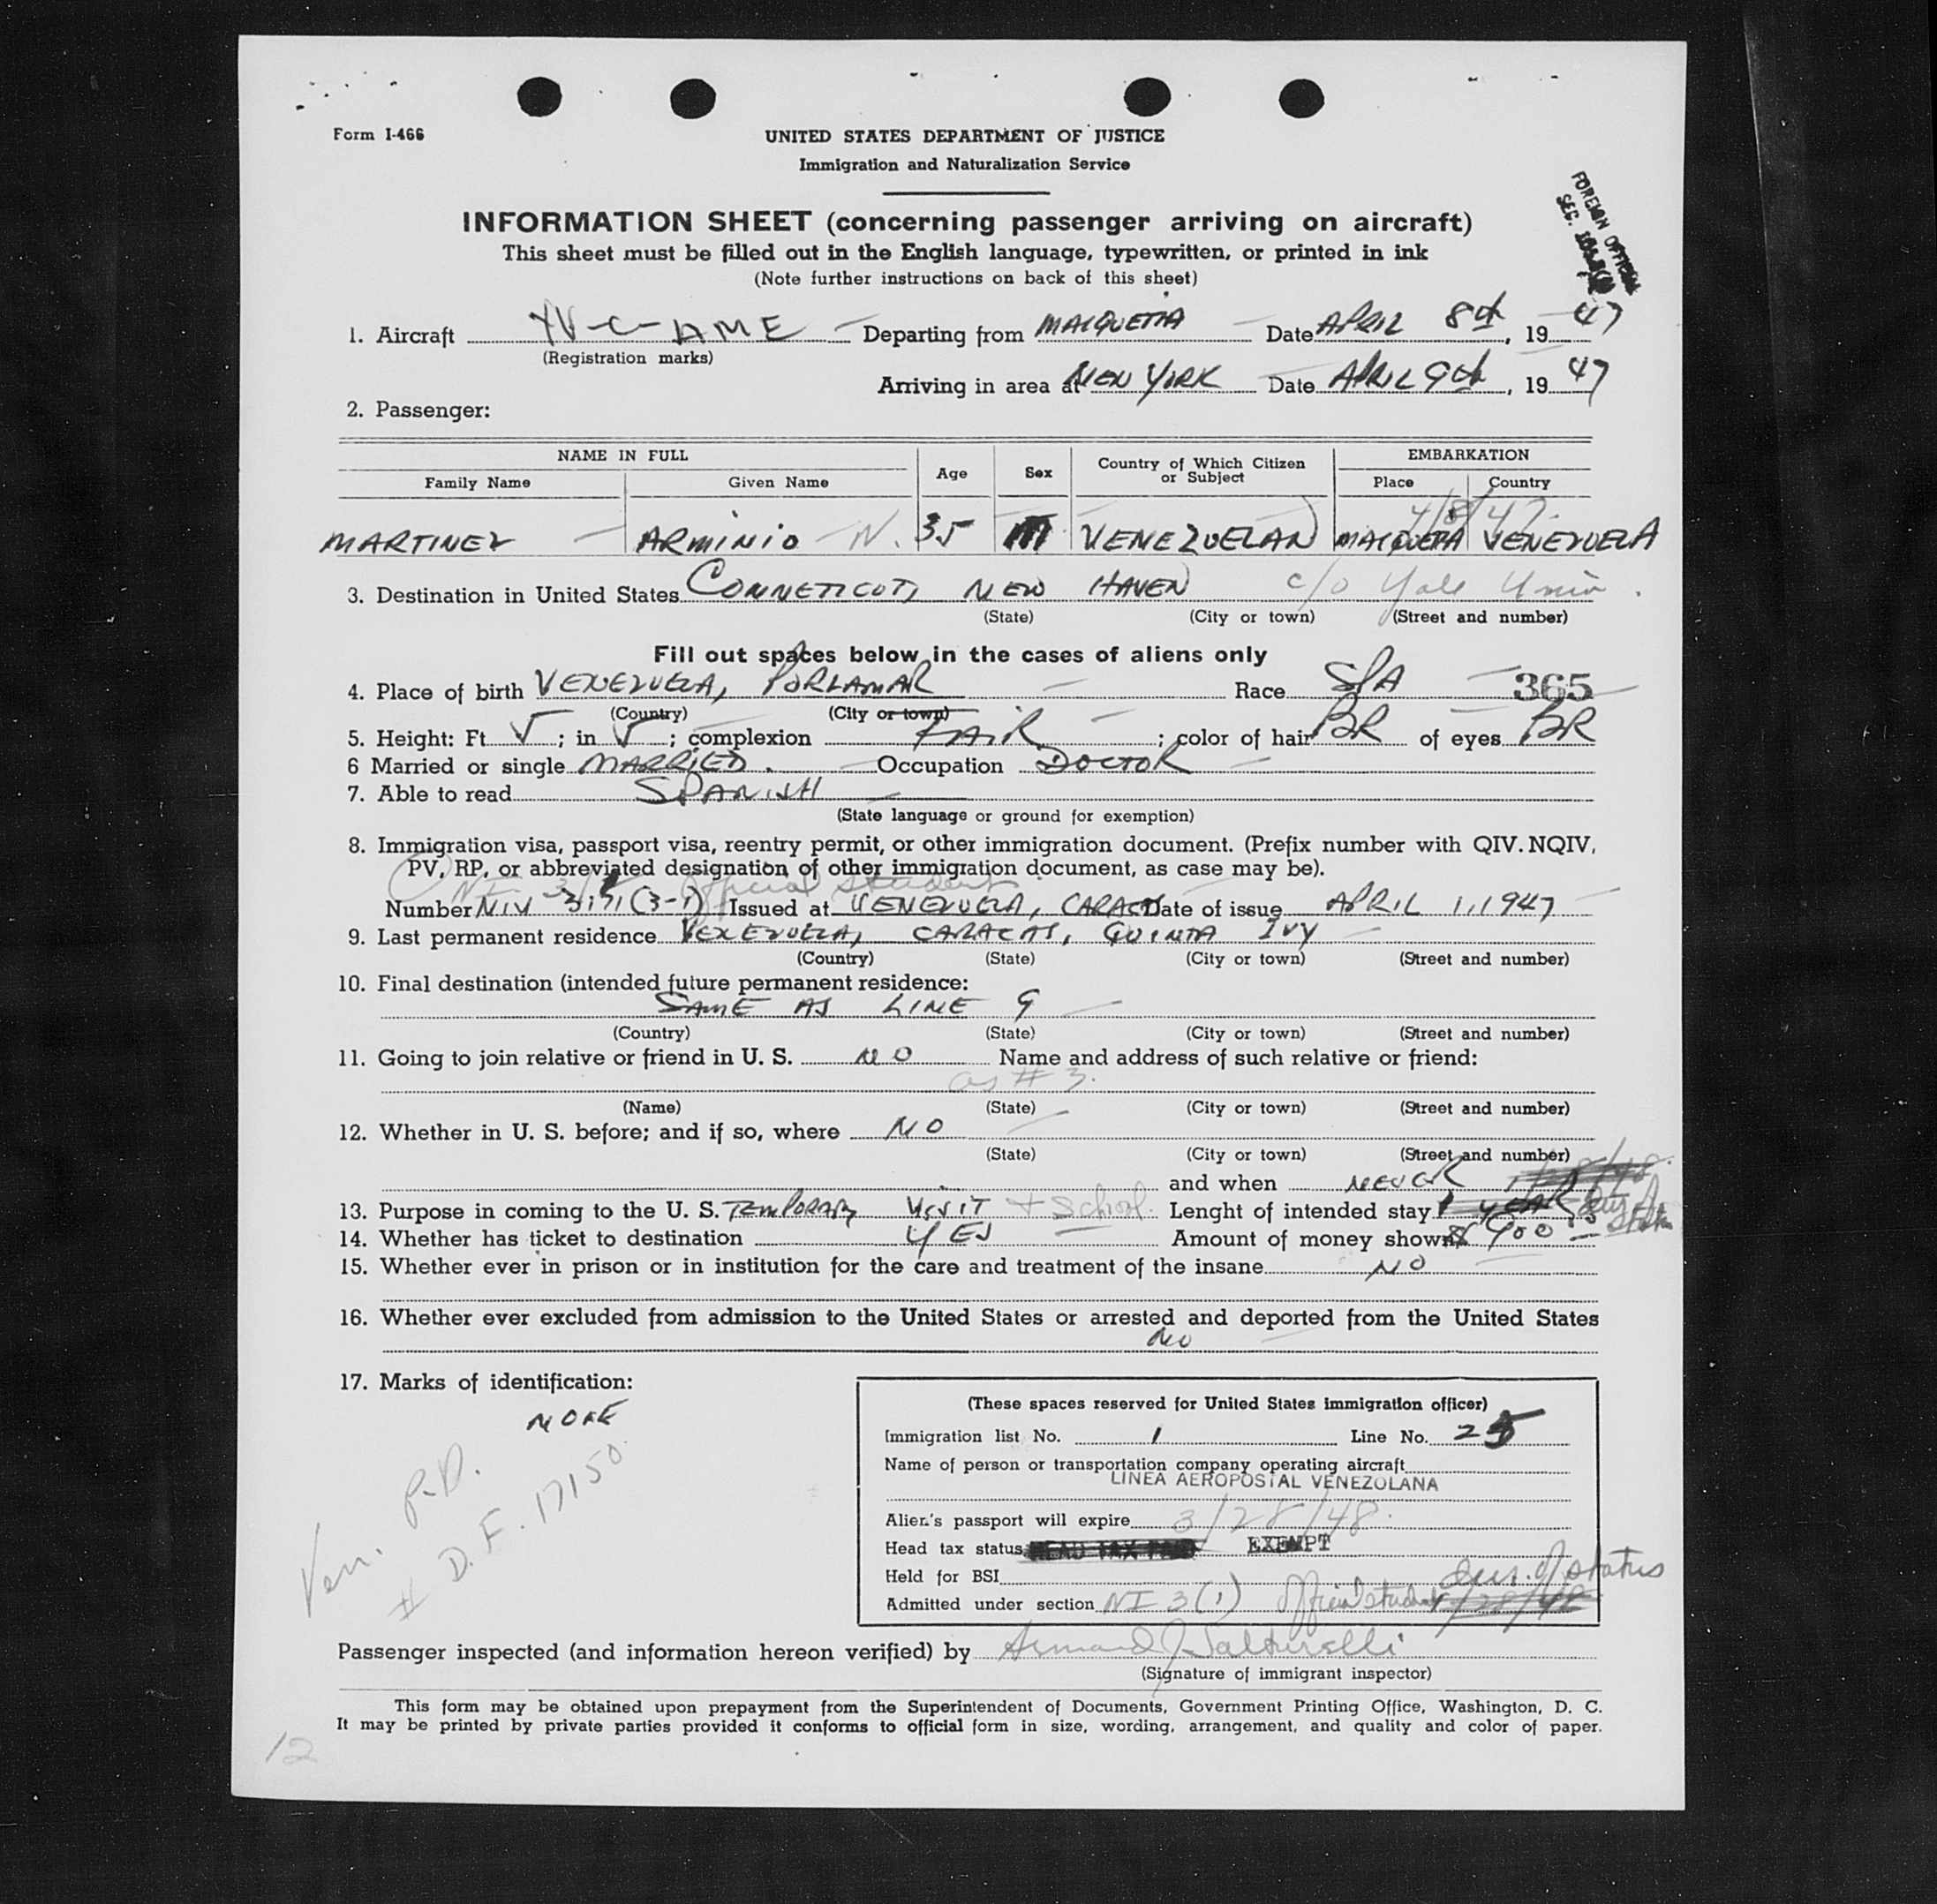 Form I-466
UNITED STATES DEPARTMENT OF JUSTICE
Immigration and Naturalization Service
FOREIGN OFFICIAL
SEC.
INFORMATION SHEET (concerning passenger arriving on aircraft)
This sheet must be filled out in the English language, typewritten, or printed in ink
(Note further instructions on back of this sheet)
1. Aircraft YV-C-AME Departing from MAIQUETIA Date APRIL 8th, 1947
(Registration marks)
Arriving in area at NEW YORK Date APRIL 9th, 1947
2. Passenger:
NAME IN FULL Age Sex Country of Which Citizen or Subject EMBARKATION
Family Name Given Name Place Country
4/8/47.
MARTINEZ ARMINIO N. 35 M VENEZUELAN MAIQUETIA VENEZUELA
3. Destination in United States CONNETICOT, NEW HAVEN c/o Yale Univ.
(State) (City or town) (Street and number)
Fill out spaces below in the cases of aliens only
4. Place of birth VENEZUELA, PORLAMAR Race SPA 365
(Country) (City or town)
5. Height: Ft 5; in 5; complexion FAIR; color of hair BR of eyes BR
6 Married or single MARRIED. Occupation DOCTOR
7. Able to read SPANISH
(State language or ground for exemption)
8. Immigration visa, passport visa, reentry permit, or other immigration document. (Prefix number with QIV. NQIV,
PV, RP, or abbreviated designation of other immigration document, as case may be).
Official student
Number NIV (3-1) Issued at VENEZUELA, CARACAS Date of issue APRIL 1, 1947
9. Last permanent residence VENEZUELA, CARACAS, QUINTA IVY
(Country) (State) (City or town) (Street and number)
10. Final destination (intended future permanent residence:
SAME AS LINE 9
(Country) (State) (City or town) (Street and number)
11. Going to join relative or friend in U. S. NO Name and address of such relative or friend:
as # 3.
(Name) (State) (City or town) (Street and number)
12. Whether in U. S. before; and if so, where NO
(State) (City or town) (Street and number)
and when NEVER
13. Purpose in coming to the U. S. TEMPORARY VISIT + School. Lenght of intended stay 1 YEAR
14. Whether has ticket to destination YES Amount of money shown $ 900
15. Whether ever in prison or in institution for the care and treatment of the insane NO
16. Whether ever excluded from admission to the United States or arrested and deported from the United States
NO
17. Marks of identification:
NONE
Ven. P.D.
# D.F. 17150
(These spaces reserved for United States immigration officer)
Immigration list No. 1 Line No. 25
Name of person or transportation company operating aircraft
LINEA AEROPOSTAL VENEZOLANA
Alien's passport will expire 3/28/48.
Head tax status HEAD TAX PAID EXEMPT
Held for BSI dur. of status
Admitted under section NI 3(1) Official student
Passenger inspected (and information hereon verified) by Armand J.
(Signature of immigrant inspector)
This form may be obtained upon prepayment from the Superintendent of Documents, Government Printing Office, Washington, D. C.
It may be printed by private parties provided it conforms to official form in size, wording, arrangement, and quality and color of paper.
12